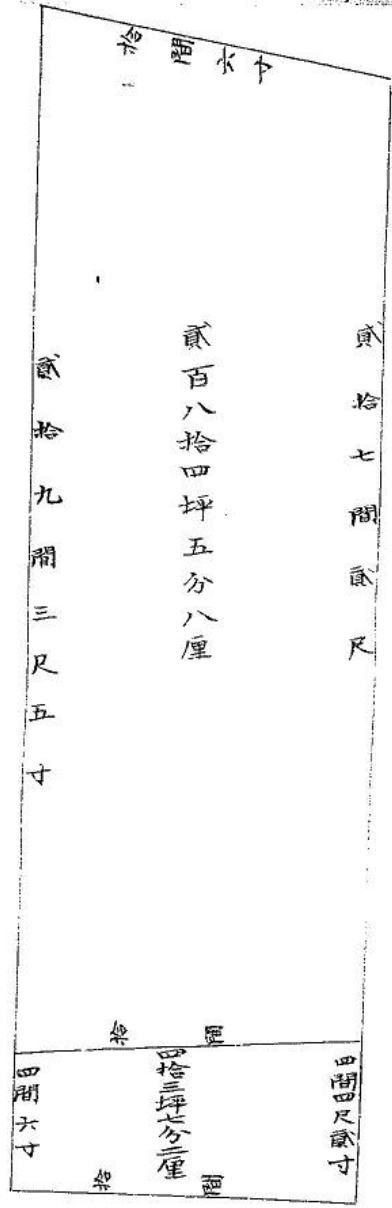 拾間六寸
貳拾七間貳尺
貳百八拾四坪五分八厘
貳拾九間三尺五寸
拾間
四間四尺貳寸
四拾三坪七分二厘
四間六寸
拾間